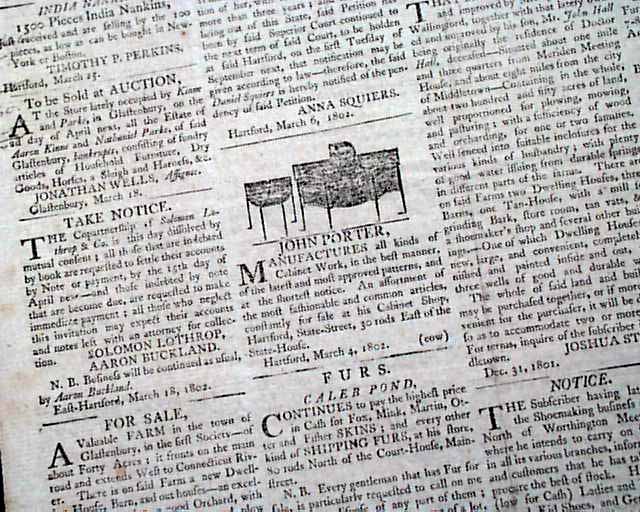 INDIA NANKINS.
1500 Pieces India Nankins,
just received and are selling by the 100
pieces, as low as can be bought in New-
York or Boston.
TIMOTHY P. PERKINS.
Hartford, March 25.
To be Sold at AUCTION,
AT the Store lately occupied by Kinne
and Parks, in Glastenbury, on the
day of April next, all the Estate of
Aaron Kinne and Nathaniel Parks, of said
Glastenbury, bankrupts, consisting of sundry
articles of Houshold Furniture, Dry
Goods, Horses, a Sleigh and Harness, &c.
JONATHAN WELLS, Assignee.
Glastenbury, March 18.
TAKE NOTICE.
THE Copartnership of Solomon La-
throp & Co. is this day dissolved by
mutual consent; all those that are indebted
by book are requested to settle their accounts
by Note or payment, by the 15th day of
April next—and those indebted by note
that are become due, are requested to make
immediate payment; all those who neglect
this invitation may expect their accounts
and notes left with an attorney for collec-
tion.
SOLOMON LOTHROP,
AARON BUCKLAND.
N. B. Business will be continued as usual,
by Aaron Buckland.
East-Hartford, March 18, 1802.
FOR SALE,
A Valuable FARM in the town of
Glastenbury, in the first Society—of
about Forty Acres; it fronts on the main
road and extends West to Connecticut Riv-
er. There is on said Farm a new Dwell-
House, Barn, and out houses—an excel-
good Orchard, with
more than three years
ing out of this State, said Petition
been by said Superior Court continued to
the next term of said Court, to be holden
at said Hartford, on the first Tuesday of
September next, that notification may be
given according to law—therefore, the said
Daniel Squiers is hereby notified of the pen-
dency of said Petition.
ANNA SQUIERS.
Hartford, March 6, 1802.
JOHN PORTER,
MANUFACTURES all kinds of
Cabinet Work, in the best manner,
of the latest and most approved patterns, and
on the shortest notice. An assortment of
the most fashionable and common articles,
constantly for sale at his Cabinet Shop,
Hartford, State-Street, 30 rods East of the
State-House.
Hartford, March 4, 1802. (eow)
FURS.
CALEB POND,
CONTINUES to pay the highest price
in Cash for Fox, Mink, Martin, Ot-
ter and Fisher SKINS; and every other
kind of SHIPPING FURS, at his store,
80 rods North of the Court-House, Main-
street.
N. B. Every gentleman that has Fur for
sale, is particularly requested to call on me
of any part of them;
of a lot.
and improved by
Wallingford, together with that lately own-
ed and improved by his son, Mr. John Hall
being originally the residence of Doctor
Hall, deceased—situated about one mile
and three quarters from Meriden Meeting
House, and about eight miles from the city
of Middletown—Containing in the whole,
about two hundred and fifty acres of land,
well proportioned for plowing, mowing,
and pasturing; with a sufficiency of wood
and orcharding, for one or two families.
Well fenced into suitable inclosures for the
various kinds of husbandry; with plenty
of good water issuing from durable springs
in different parts of the farms. There
on said Farms two Dwelling Houses, three
Barns, one Tan-House, with a mill
grinding Bark, store room, tan vats,
a shoemaker's shop and several other buil-
ings—One of which Dwelling Houses
new, large, and convenient, completely
nished and painted inside and out,
three wells of good and durable w
The whole of said land and buil
may be purchased together, or if more
venient for the purchaser, it will be
so as to accommodate two or more
For terms, inquire of the Subscriber
dletown.
JOSHUA ST
Dec. 31, 1801.
NOTICE.
THE Subscriber having
the Shoemaking business
North of Worthington Mee
where he intends to carry on
in all its various branches, infor
and customers that he has ta
procure the best of stock.
(low for Cash) Ladies and
Kid Shoes, and